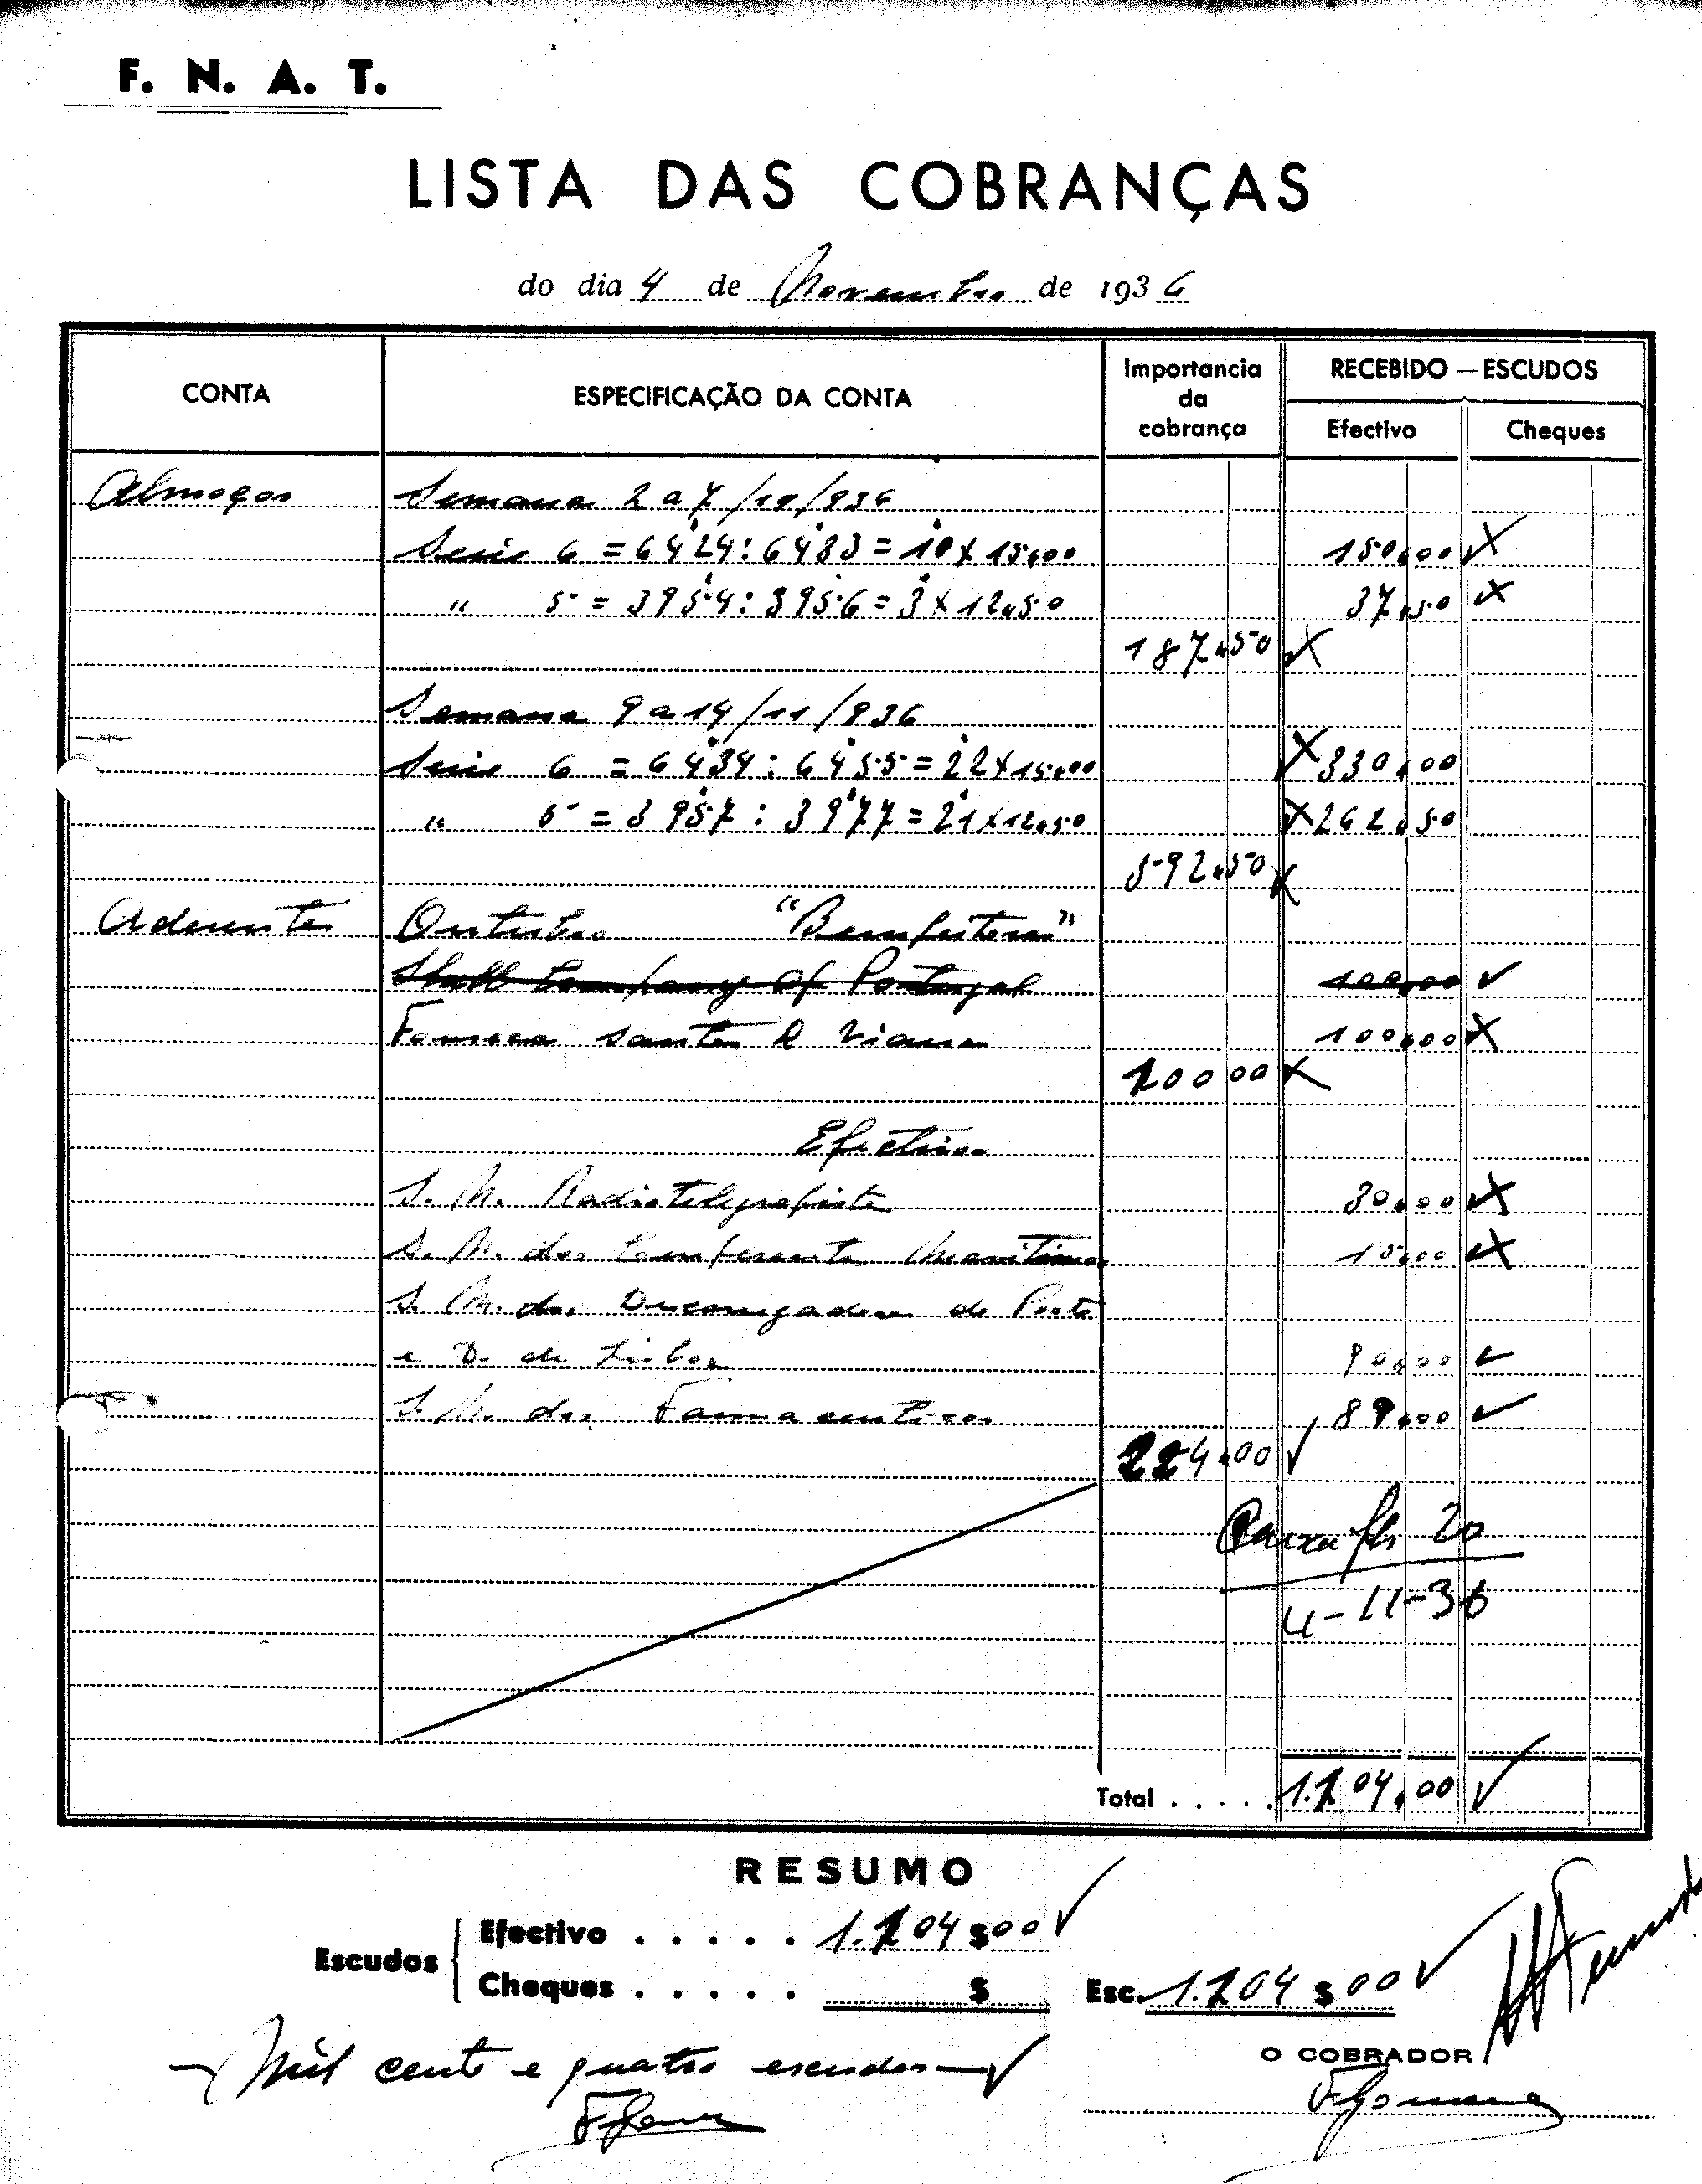 F. N. A. T.
LISTA DAS COBRANÇAS
do dia 4 de Novembro de 1936
CONTA
ESPECIFICAÇÃO DA CONTA
Importancia da cobrança
RECEBIDO — ESCUDOS
Efectivo
Cheques
Almoços Semana 2 a 7/11/936
Serie 6 = 6424:6433 = 10 x 15,00 150,00
" 5 = 3954:3956 = 3 x 12,50 37,50
187,50
Semana 9 a 14/11/936
Serie 6 = 6434:6455 = 22 x 15,00 330,00
" 5 = 3957:3977 = 21 x 12,50 262,50
592,50
Aderentes Outubro "Bemfeitores"
Shell Company Of Portugal 100,00
Fonseca Santos & Viana 100,00
100 00
Efectivos
S. N. Radiotelegrafista 30,00
S. N. dos Conferentes Maritimos 15,00
S. N. dos Descarregadores do Porto
e D. de Lisboa 90,00
S. N. dos Farmaceuticos 89,00
224,00
Caixa fls 20
4-11-36
Total . . . . . 1.104,00
RESUMO
Escudos
Efectivo . . . . . 1.104$00
Cheques . . . . . $
Esc. 1.104$00
Mil cento e quatro escudos
O COBRADOR